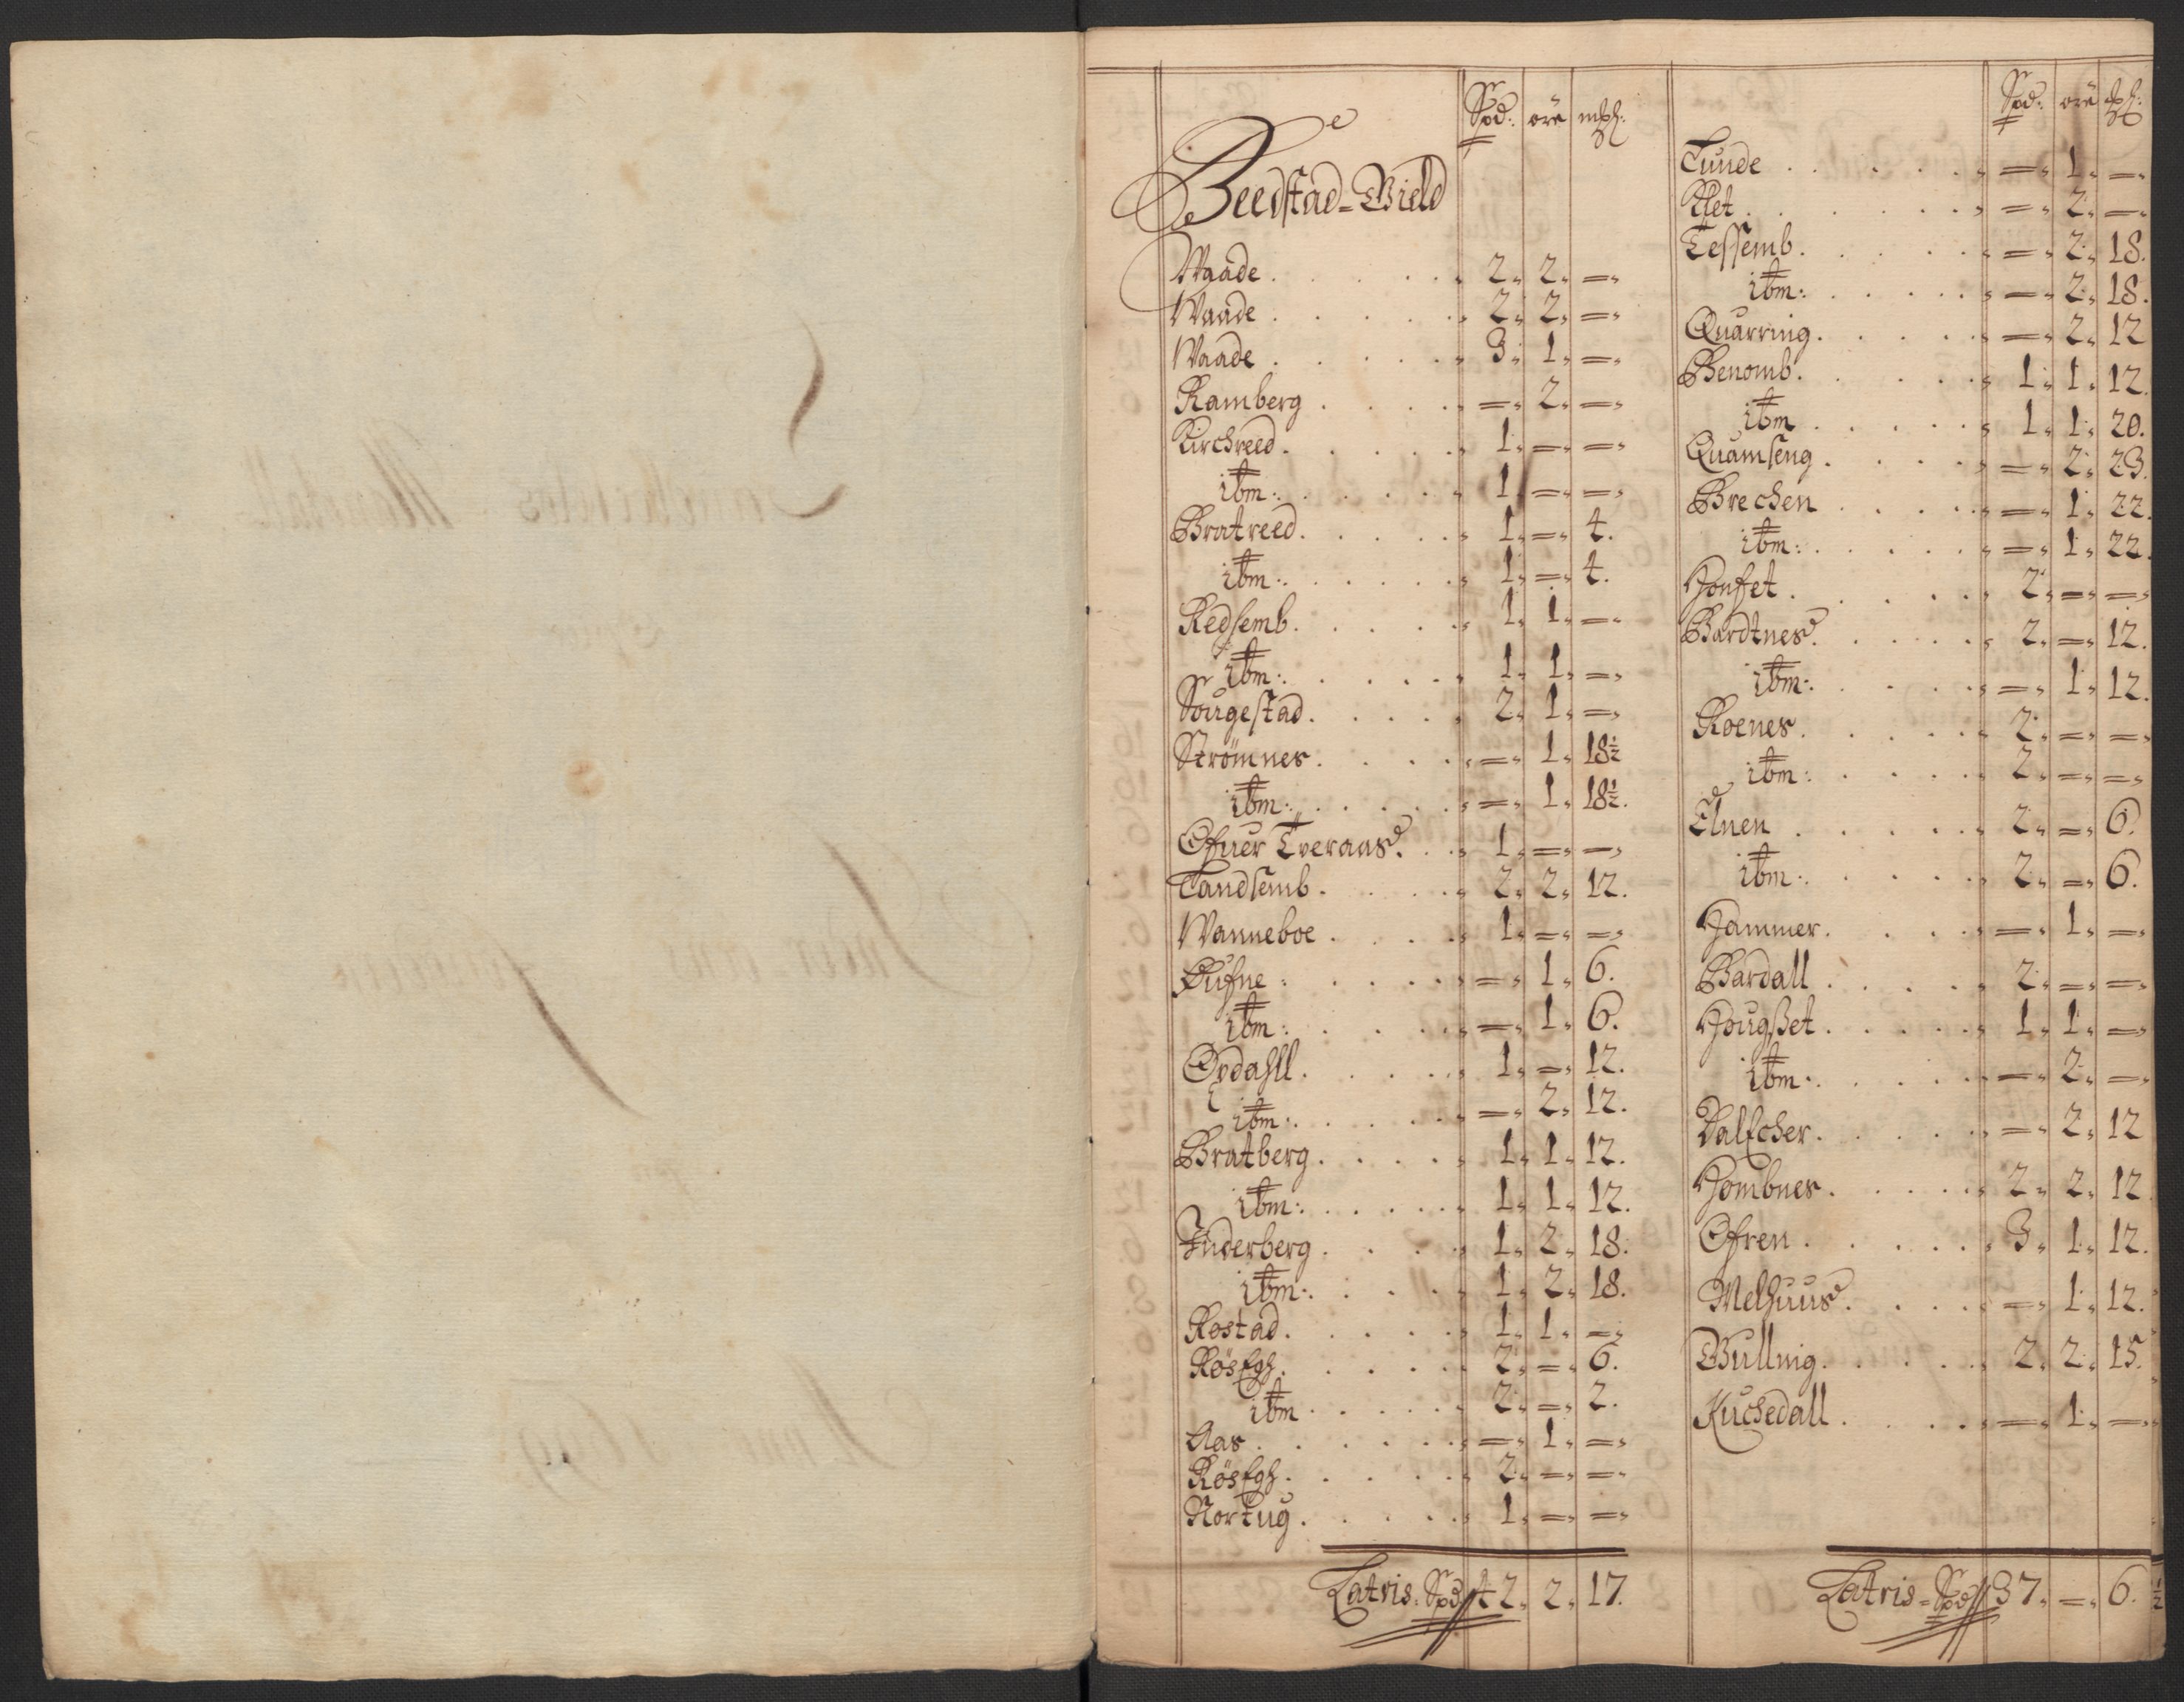 Spd: öre mkl:
Beedstad-Gield
Waade . . . . . 2. 2. =
Waade . . . . . 2. 2. =
Waade . . . . . 3. 1. =
Ramberg . . . . = 2. =
Kirchreed . . . . . 1. = =
ibm: . . . . . 1. = =
Bratreed . . . . . 1. = 4.
ibm: . . . . . 1. = 4.
Redsemb . . . . . 1. 1. =
ibm: . . . . 1. 1. =
Sougestad . . . . 2. 1. =
Strömnes . . . . = 1. 18½
ibm: . . . . . = 1. 18½.
Ofuer Tveraas . . 1. = =
Tandsemb . . . . 2. 2. 12.
Wanneboe . . . . 1. = =
Dufne . . . . . = 1. 6.
ibm: . . . . = 1. 6.
Opdahll . . . . . 1. = 12.
ibm: . . . . . = 2. 12.
Bratberg . . . . 1. 1. 12.
ibm: . . . . . 1. 1. 12.
Inderberg . . . . 1. 2. 18.
ibm: . . . . 1. 2. 18.
Rostad . . . . . 1. 1. =
Rösegh . . . . . 2. = 6.
ibm . . . . . 2. = 2.
Aas . . . . . . = 1. =
Rösegh . . . . . 2. = =
Nortug . . . . . 1. = =
Latris. Spd 42. 2. 17.
Spd: öre mkl:
Tunde . . . . . . = 1. =
. . . . . . = 2. =
Tessemb . . . . . = 2. 18.
ibm: . . . . . = 2. 18.
Quarning . . . . . = 2. 12
Benomb . . . . . 1. 1. 12.
ibm . . . . . 1. 1. 20.
Quamseng . . . . = 2. 23.
Brechen . . . . = 1. 22.
ibm: . . . . . = 1. 22.
Honset . . . . . 2. = =
Bardtnes . . . . . 2. = 12.
ibm: . . . . = 1. 12.
Roenes . . . . . 2. = =
ibm: . . . . 2. = =
Elnen . . . . . 2. = 6.
ibm: . . . . . 2. = 6.
Hammer . . . . = 1. =
Bardall . . . . . 2. = =
Hougßet . . . . . 1. 1. =
ibm: . . . . . = 2. =
Dalscher . . . . . = 2. 12
Hombnes . . . . . 2. 2. 12
Ofren . . . . . . 3. 1. 12.
Melhuus . . . . = 1. 12.
Gullnig . . . . . 2. 2. 15.
Kuchedall . . . . = 1. =
Latris = Spd 37. = 6. ½